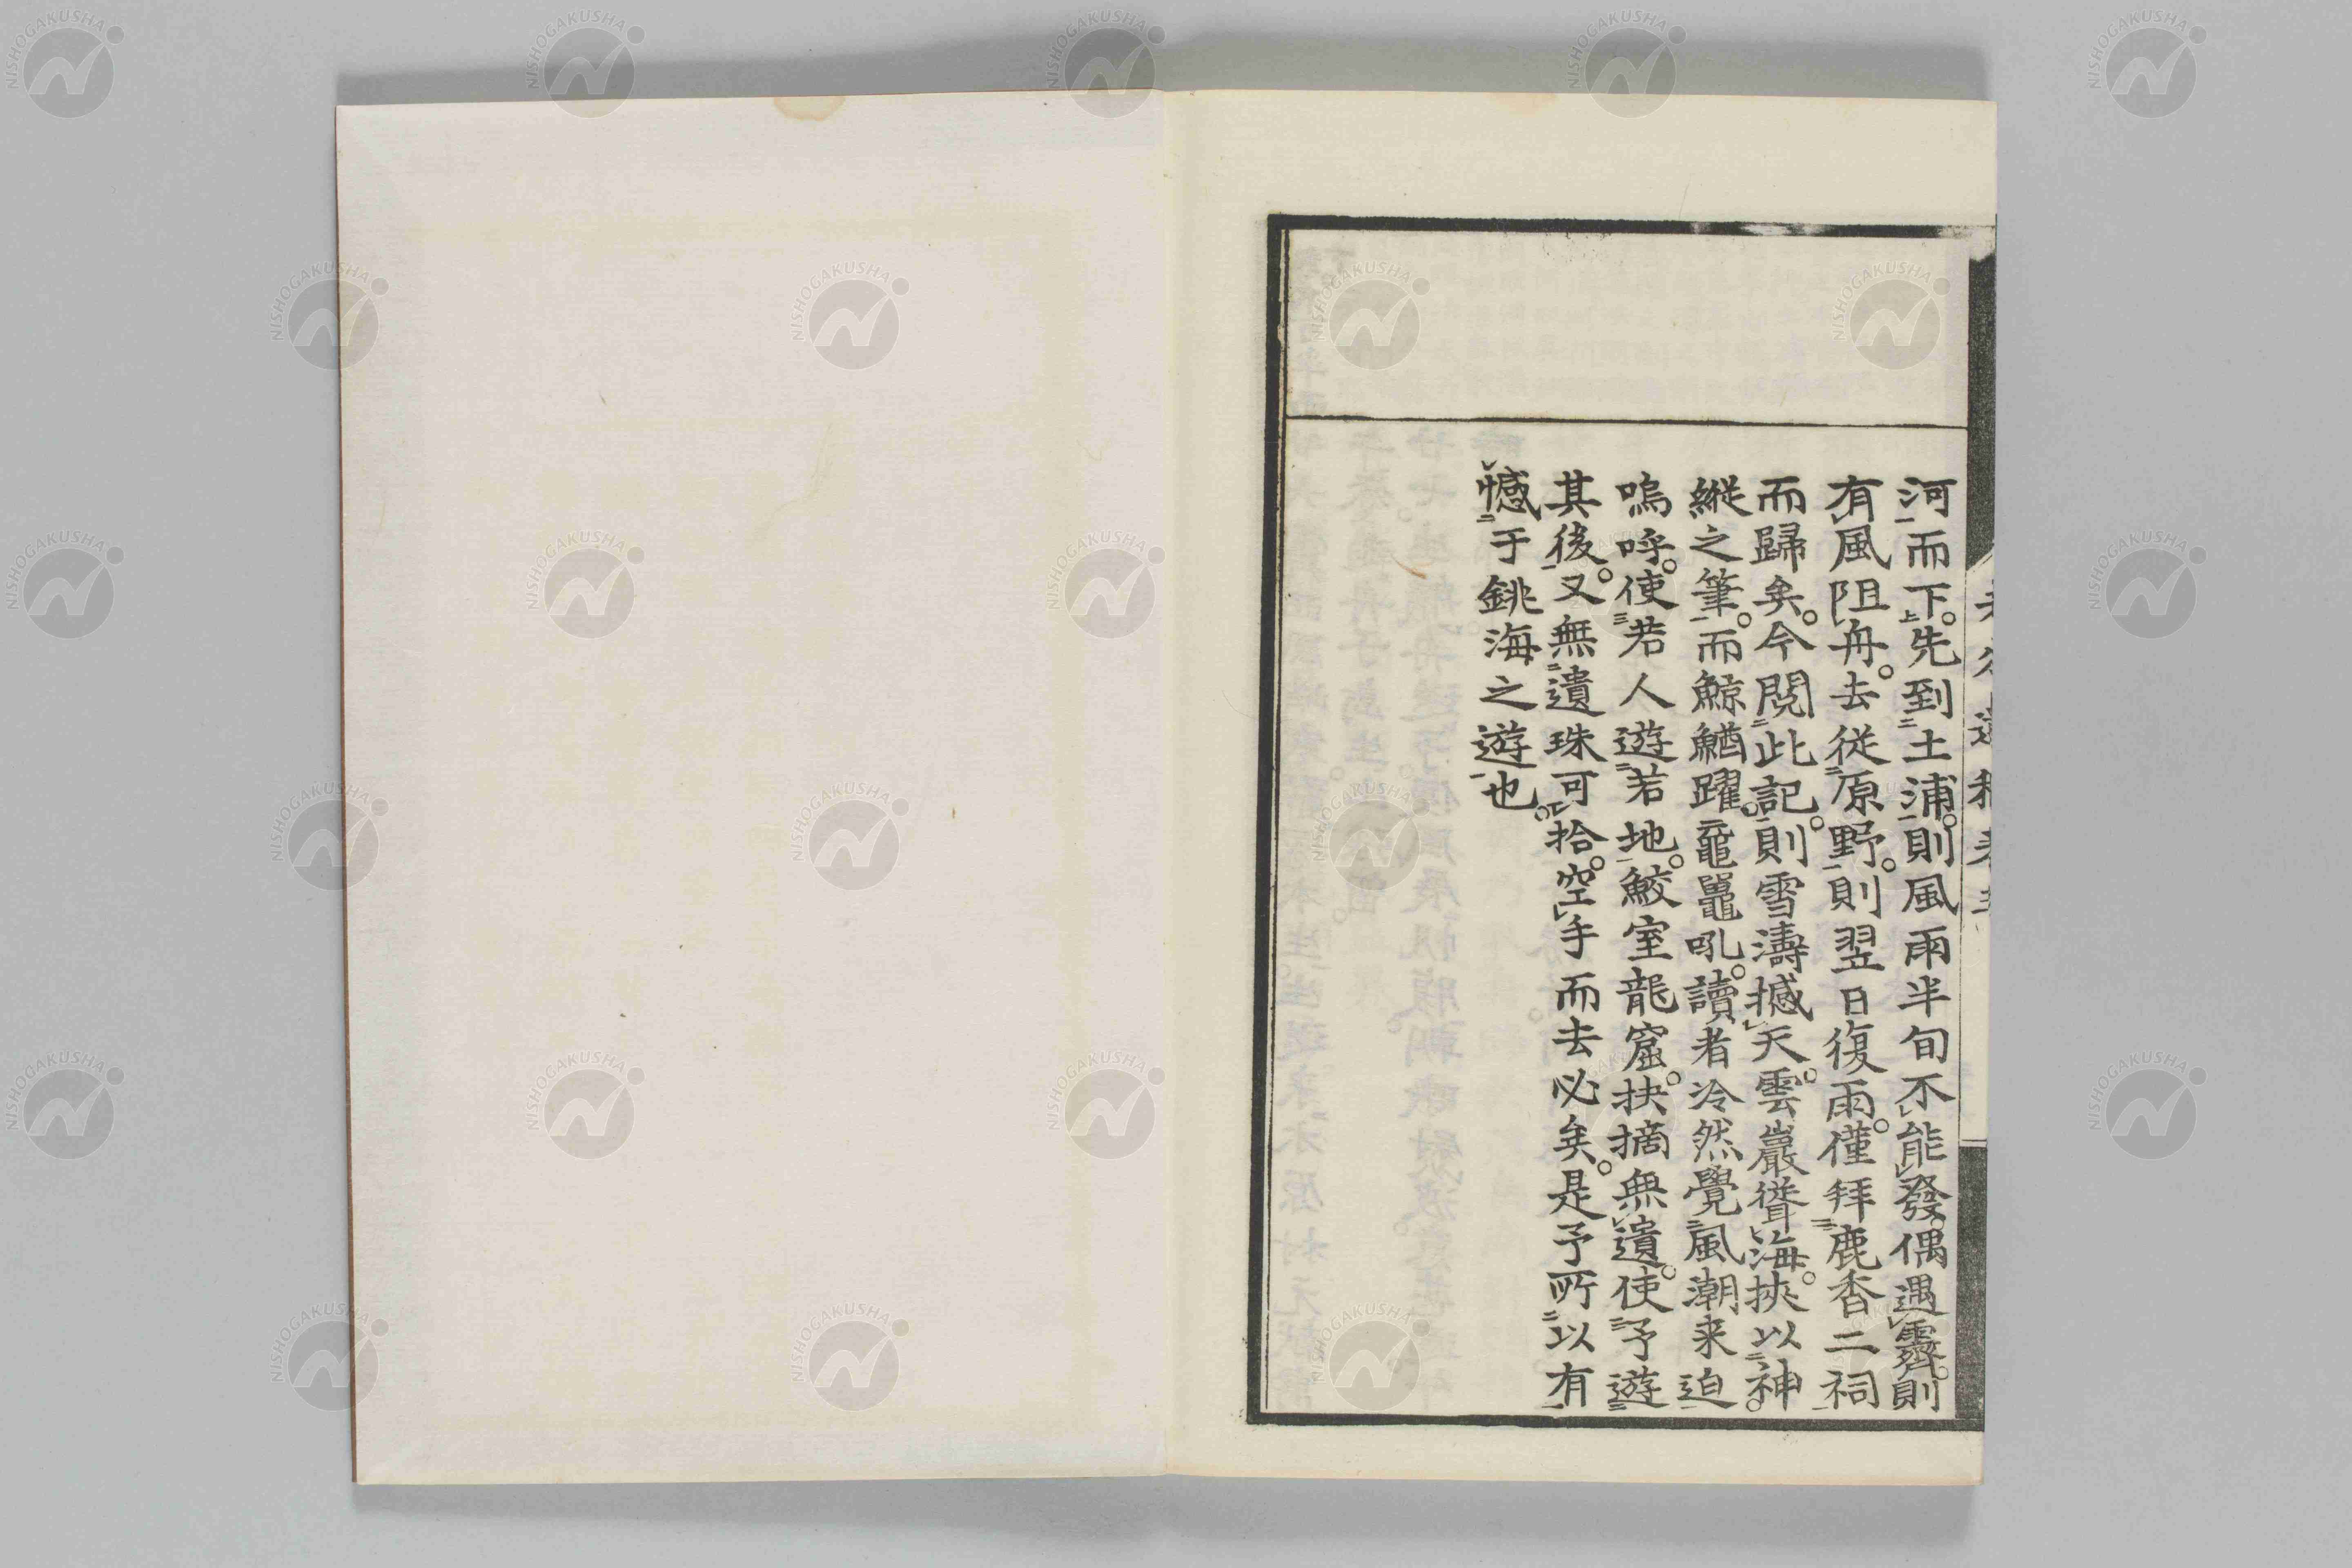 河而下。先到土浦。則風雨半旬不能發。偶遇霽。則
有風阻舟。去從原野。則翌日復雨。僅拜鹿香二祠
而歸矣。今閱此記。則雪濤撼天。雲巖聳海。挾以神
縱之筆。而鯨鰌躍。黿鼉吼。讀者冷然覺風潮来迫
嗚呼。使若人遊若地。鮫室龍窟。抉摘無遺。使予遊
其後。又無遺珠可拾。空手而去必矣。是予所以有
憾于銚海之遊也。
NISHOGAKUSHA